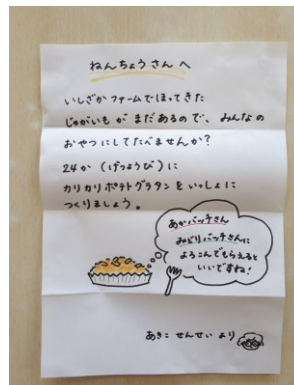 ねんちょうさんへ
いしざかファームでほってきた
じゃがいもがまだあるので、みんなの
おやつにしてたべませんか？
24か（げつようび）に
カリカリポテトグラタンをいっしょに
つくりましょう。
あかバッチさん
みどりバッチさんに
よろこんでもらえると
いいですね！
あきこせんせいより